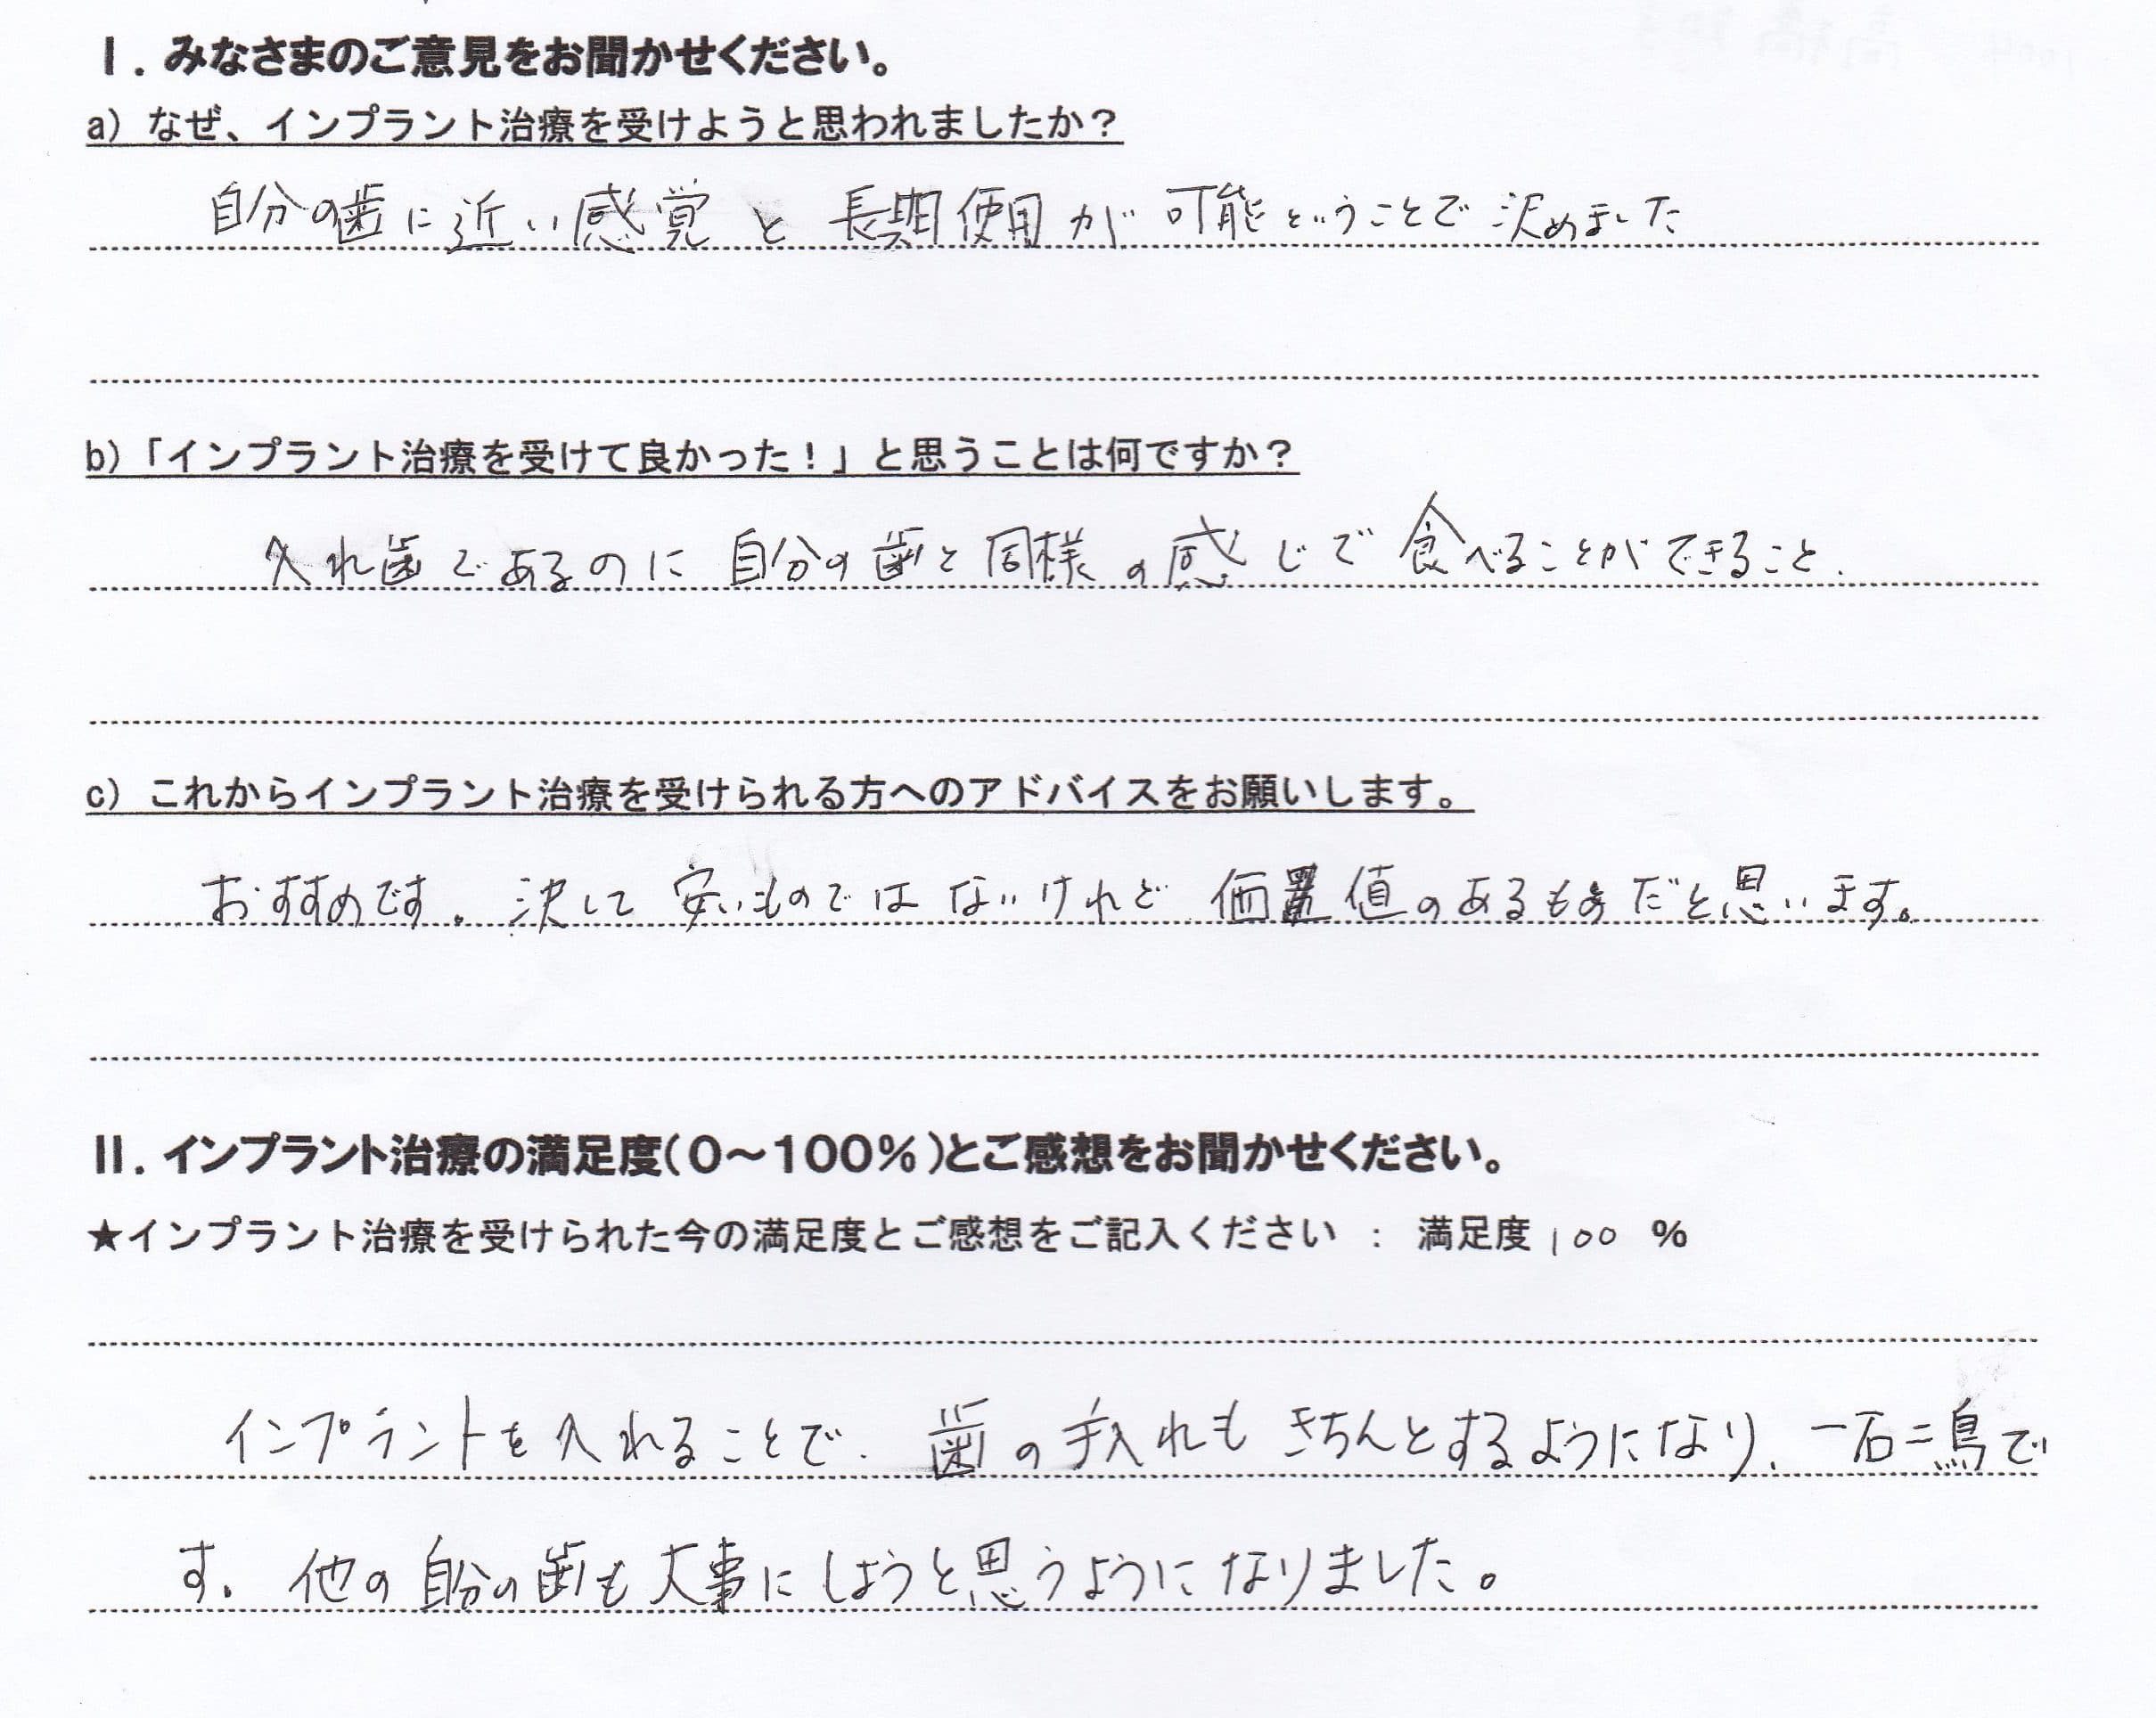 Ⅰ. みなさまのご意見をお聞かせください。
a) なぜ、インプラント治療を受けようと思われましたか？
自分の歯に近い感覚と長期使用が可能ということで決めました
b)「インプラント治療を受けて良かった！」と思うことは何ですか？
入れ歯であるのに自分の歯と同様の感じで食べることができること.
c) これからインプラント治療を受けられる方へのアドバイスをお願いします。
おすすめです。決して安いものではないけれど価値のあるものだと思います。
Ⅱ. インプラント治療の満足度(０～１００％)とご感想をお聞かせください。
★インプラント治療を受けられた今の満足度とご感想をご記入ください ： 満足度 100 %
インプラントを入れることで、歯の手入れもきちんとするようになり、一石二鳥で
す. 他の自分の歯も大事にしようと思うようになりました。